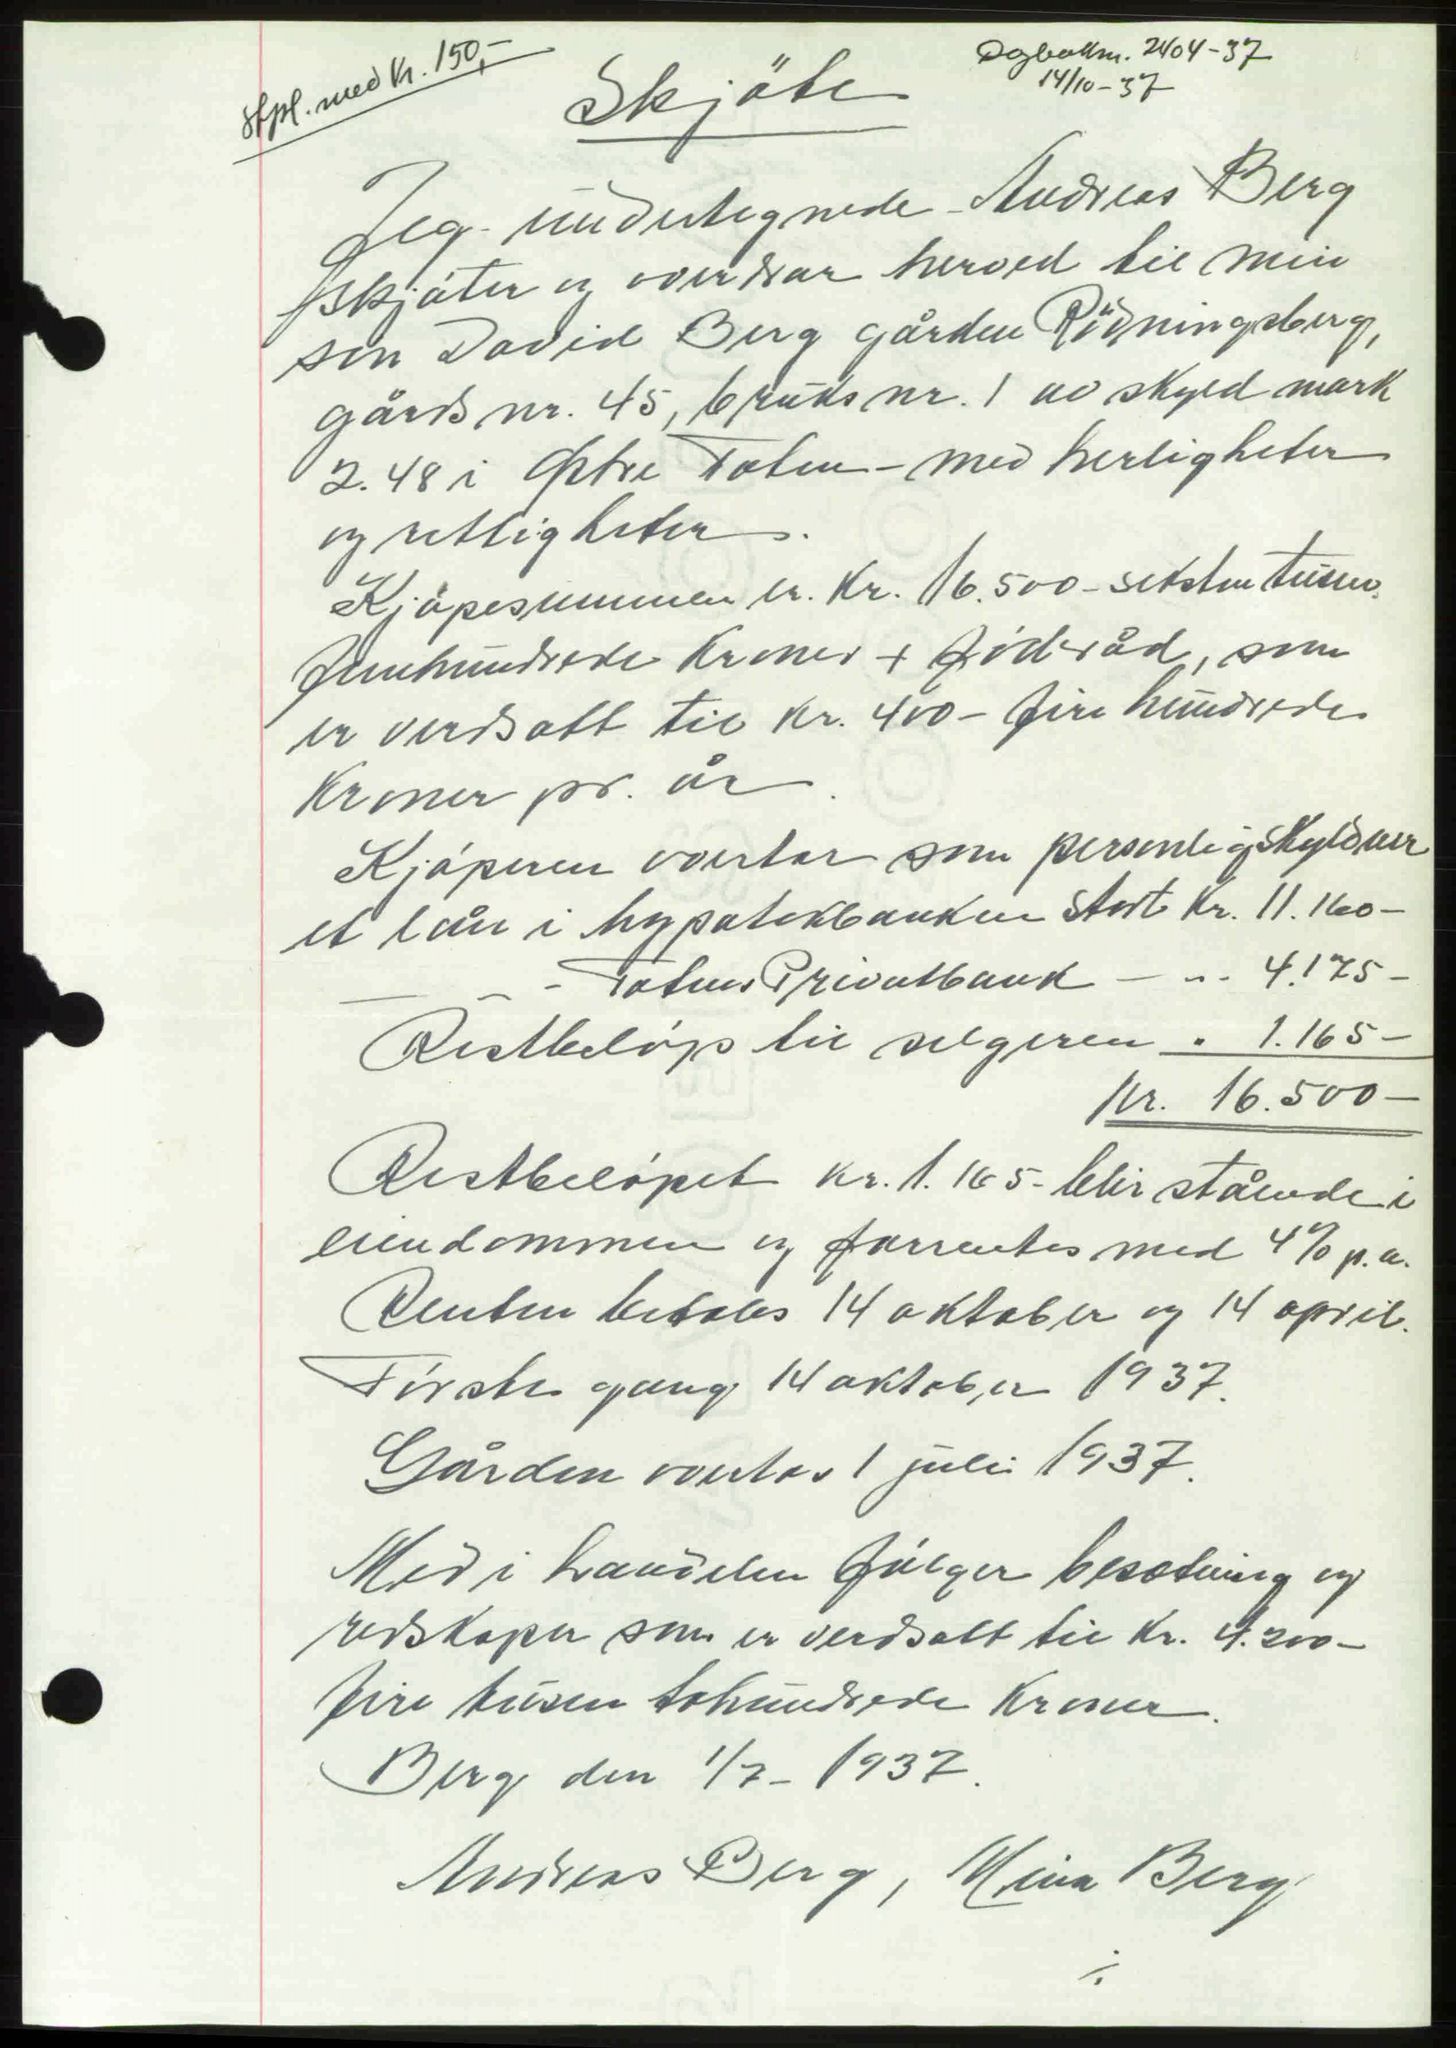 Stpl. med Kr. 150,-
Dagboknr. 2404-37
14/10-37
Skjöte
Jeg undertegnede Andreas Berg
skjöter og overdrar herved til min
sön David Berg gården Rödningsberg,
gårds nr. 45, bruks nr. 1 av skyld mark
2.48 i Östre Toten - med herligheter
og rettigheter.
Kjöpesummen er. Kr. 16.500 - seksten tusen
femhundrede Kroner + föderåd, som
er verdsatt til Kr. 400 - fire hundrede
Kroner pr. år.
Kjöperen overtar som personlig skyldner
et lån i hypotekbanken stort Kr. 11.160 -
— " - Totens Privatbank — " - 4.175 -
Restbelöp til selgeren " 1.165 -
Kr. 16.500 -
Restbelöpet Kr. 1.165 - blir stående i
eiendommen og forrentes med 4% p.a.
Renten betales 14 oktober og 14 april.
Förste gang 14 oktober 1937.
Gården overtas 1 juli 1937.
Med i handelen fölger besetning og
redskaper som er verdsatt til Kr. 4.200 -
fire tusen tohundrede Kroner.
Berg den 1/7 - 1937.
Andreas Berg, Mina Berg